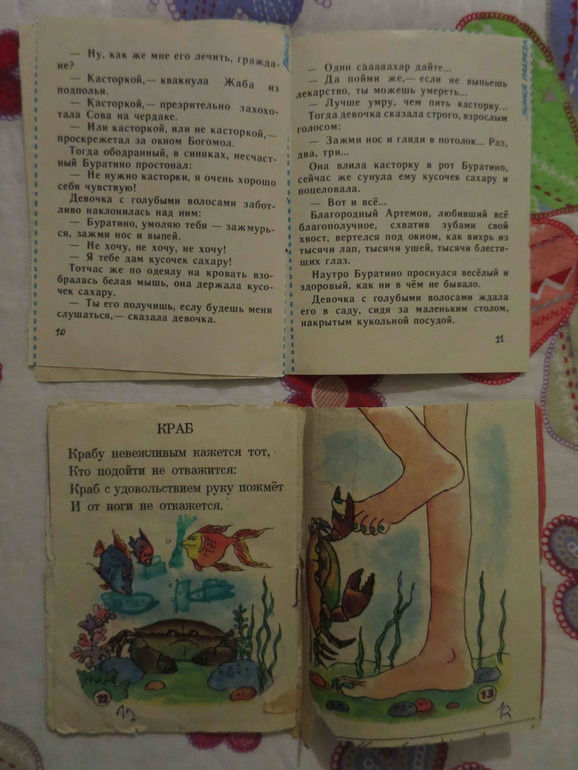 — Ну, как же мне его лечить, гражда-
не?
— Касторкой,— квакнула Жаба из
подполья.
— Касторкой,— презрительно захохо-
тала Сова на чердаке.
— Или касторкой, или не касторкой,—
проскрежетал за окном Богомол.
Тогда ободранный, в синяках, несчаст-
ный Буратино простонал:
— Не нужно касторки, я очень хорошо
себя чувствую!
Девочка с голубыми волосами забот-
ливо наклонилась над ним:
— Буратино, умоляю тебя — зажмурь-
ся, зажми нос и выпей.
— Не хочу, не хочу, не хочу!
— Я тебе дам кусочек сахару!
Тотчас же по одеялу на кровать взо-
бралась белая мышь, она держала кусо-
чек сахару.
— Ты его получишь, еслу будешь меня
слушаться,— сказала девочка.
10
— Один сааааахар дайте...
— Да пойми же,— если не выпьешь
лекарство, ты можешь умереть...
— Лучше умру, чем пить касторку...
Тогда девочка сказала строго, взрослым
голосом:
— Зажми нос и гляди в потолок... Раз,
два, три...
Она влила касторку в рот Буратино,
сейчас же сунула ему кусочек сахару и
поцеловала.
— Вот и всё...
Благородный Артемон, любивший всё
благополучное, схватив зубами свой
хвост, вертелся под окном, как вихрь из
тысячи лап, тысячи ушей, тысячи блестя-
щих глаз.
Наутро Буратино проснулся весёлый и
здоровый, как ни в чём не бывало.
Девочка с голубыми волосами ждала
его в саду, сидя за маленьким столом,
накрытым кукольной посудой.
11
линия разреза
КРАБ
Крабу невежливым кажется тот,
Кто подойти не отважится:
Краб с удовольствием руку пожмёт
И от ноги не откажется.
12
12
13
13